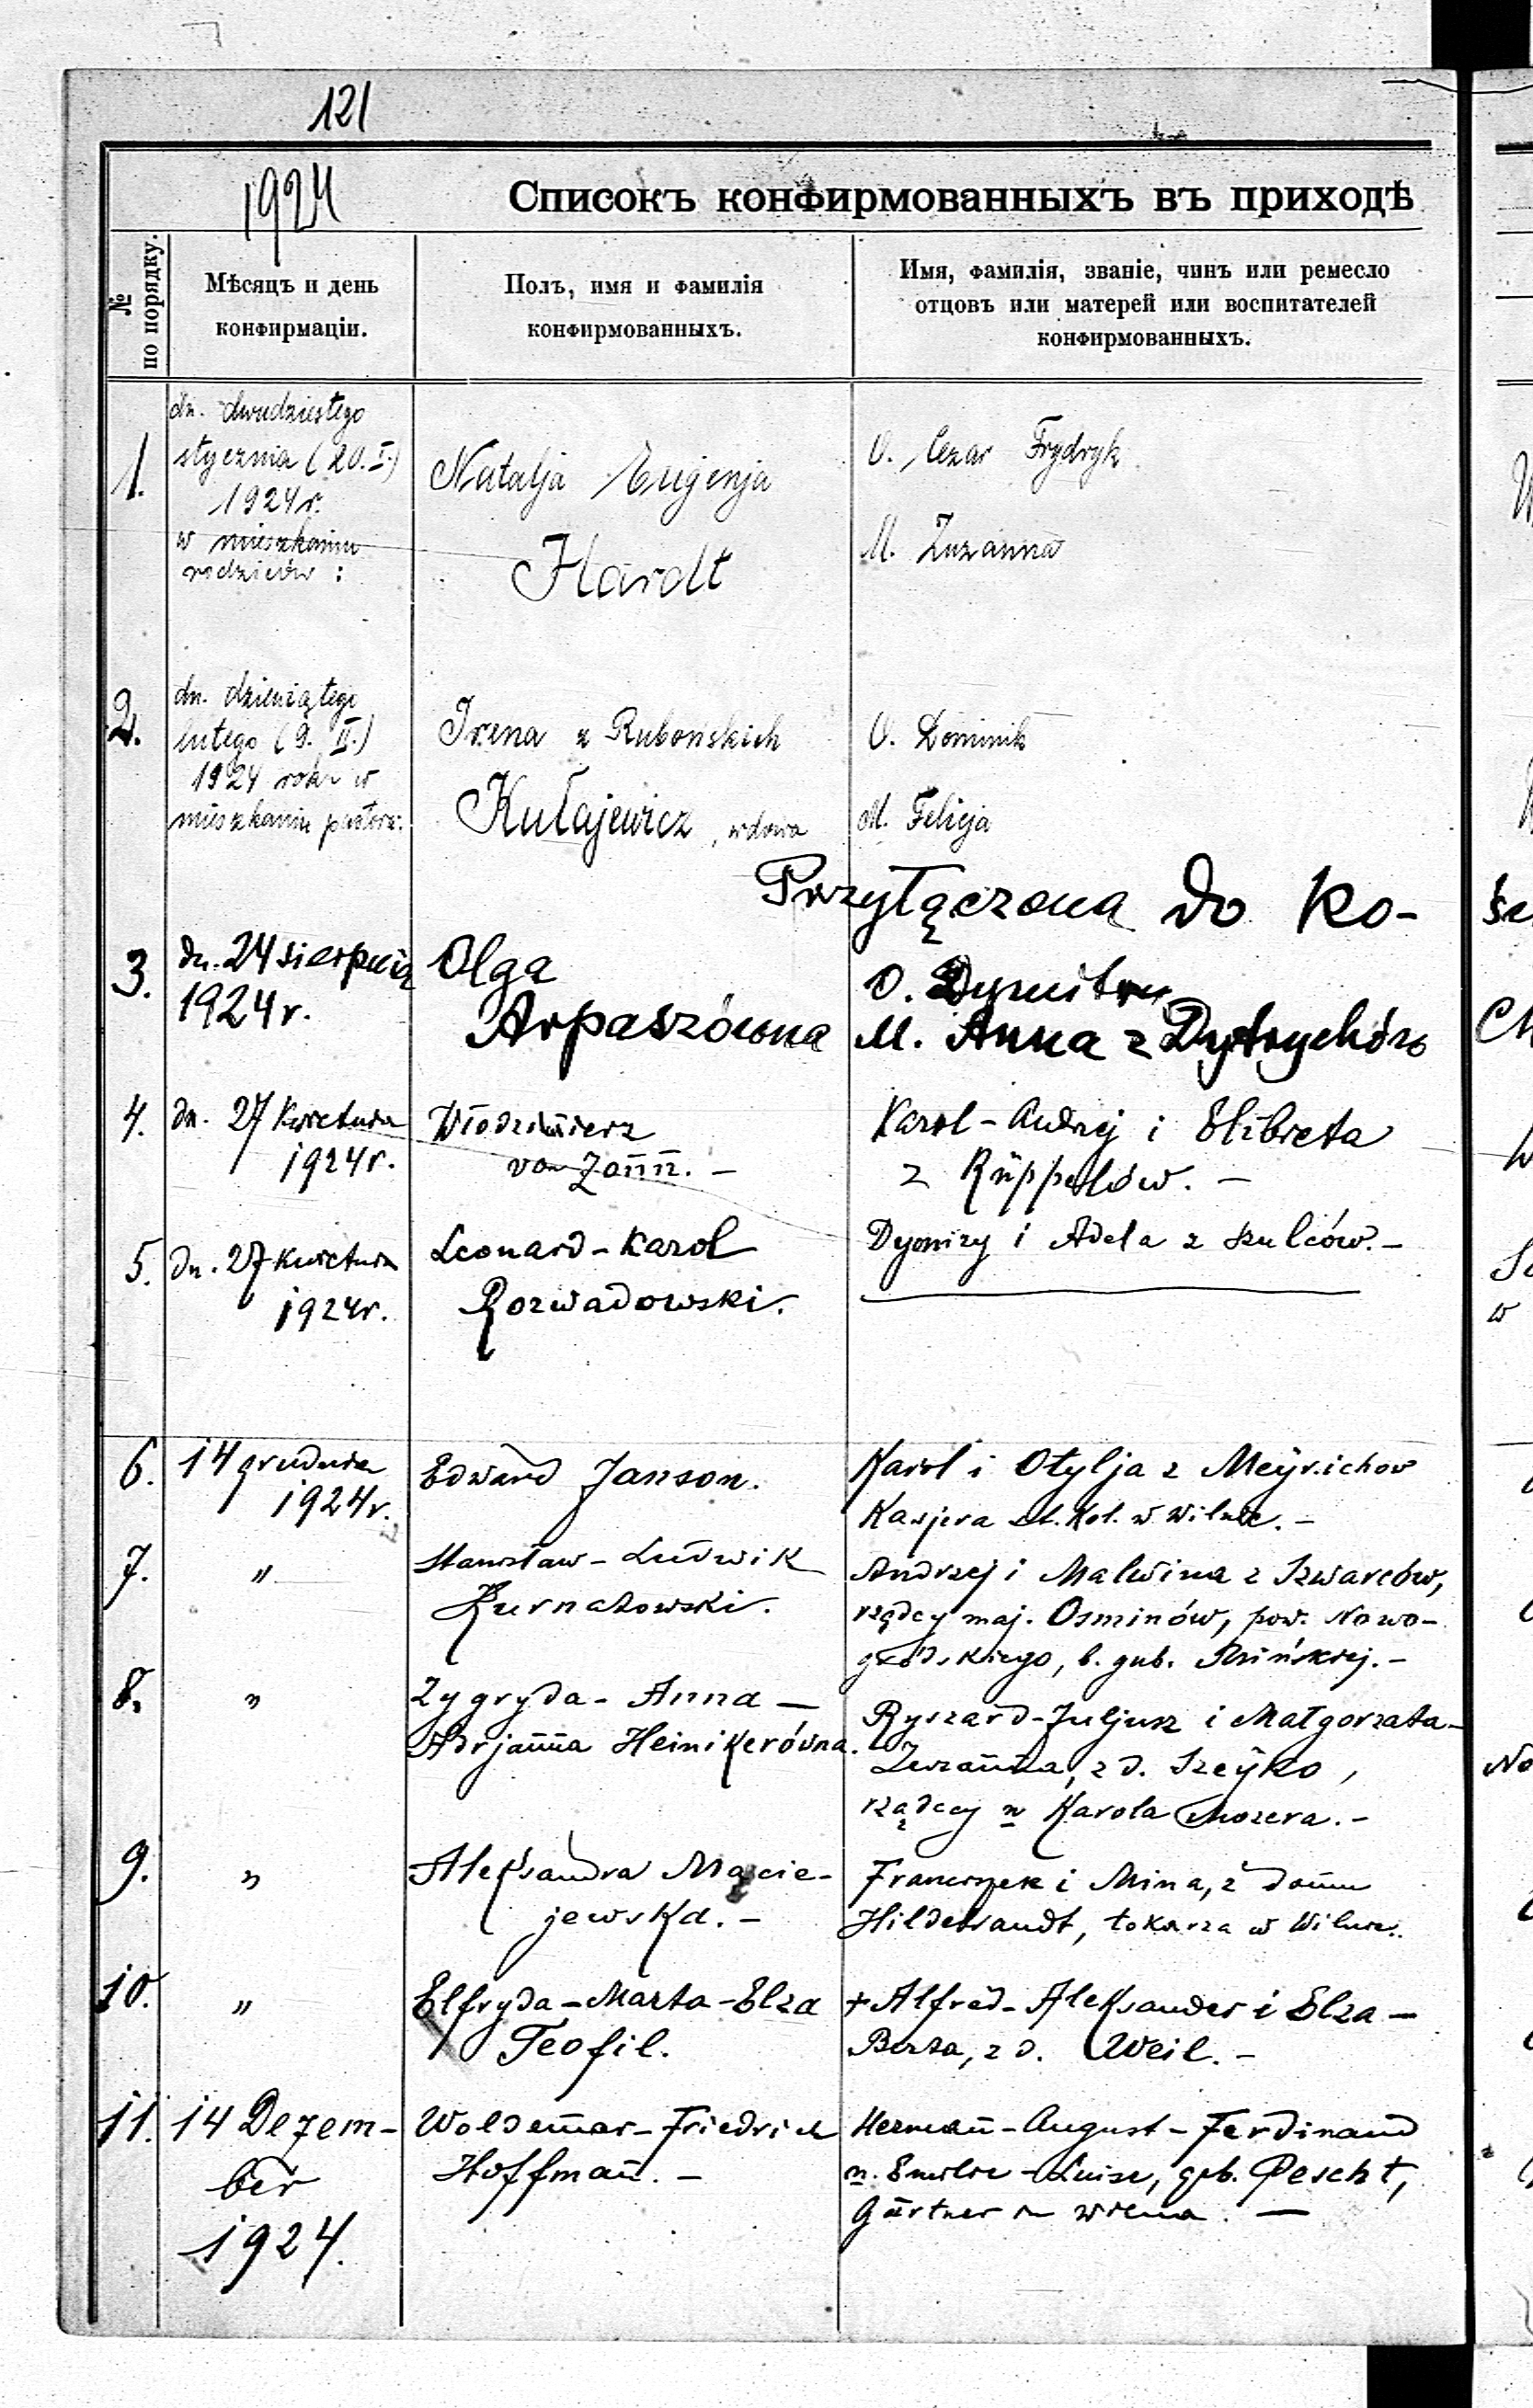 121
1924
Списокъ конфирмованныхъ въ приходѣ
№ по порядку.
Мѣсяцъ и день
конфирмаціи.
Полъ, имя и фамилія
конфирмованныхъ.
Имя, фамилія, званіе, чинъ или ремесло
отцовъ или матерей или воспитателей
конфирмованныхъ.
1.
dn. dwudziestego
stycznia (20. I.)
1924 r.
w mieszkaniu
rodziców :
Natalja Eugenja
Hardt
O. Cezar Frydryk
M. Zuzanna
2.
dn. dziewiątego
lutego (9. II.)
1924 roku w
mieszkaniu pastora.
Irena z Rubońskich
Kułajewicz, wdowa
O. Dominik
M. Felicja
Przyłączona do ko-
3.
dn. 24 sierpnia
1924 r.
Olga
Arpaszówna
O. Dymitr
M. Anna z Dytrychów
4.
dn. 27 Kwietnia
1924 r.
Włodzimierz
von Zann. -
Karol-Andrzej i Elżbieta
z Rüppelów. -
5.
dn. 27 Kwietnia
1924 r.
Leonard-Karol
Rozwadowski.
Dyonizy i Adela z Szulców. -
6.
14 grudnia
1924 r.
Edward Janson.
Karol i Otylja z Meyrichow
Kasjera st. Kol. w Wilnie. -
7.
"
Stanisław-Ludwik
Kurnatowski.
Andrzej i Malwina z Szwarców,
rządcy maj. Osminów, pow. Nowo-
gródskiego, b. gub. Mińskiej. -
8.
"
Zygryda-Anna-
Adrjanna Heinikerówna.
Ryszard-Juljusz i Małgorzata-
Zuzanna, z d. Szeyko,
rządcy u Karola Mozera. -
9.
"
Aleksandra Macie-
jewska. -
Franciszek i Mina, z domu
Hildebrandt, tokarza w Wilnie.
10.
"
Elfryda-Marta-Elza
Teofil.
+ Alfred-Aleksander i Elza-
Berta, z d. Weil. -
11.
14 Dezem-
ber
1924.
Woldemar-Friedrich
Hoffmann. -
Hermann-August-Ferdinand
u. Emilie-Luise, geb. Pescht,
Gärtner in Wilna. -